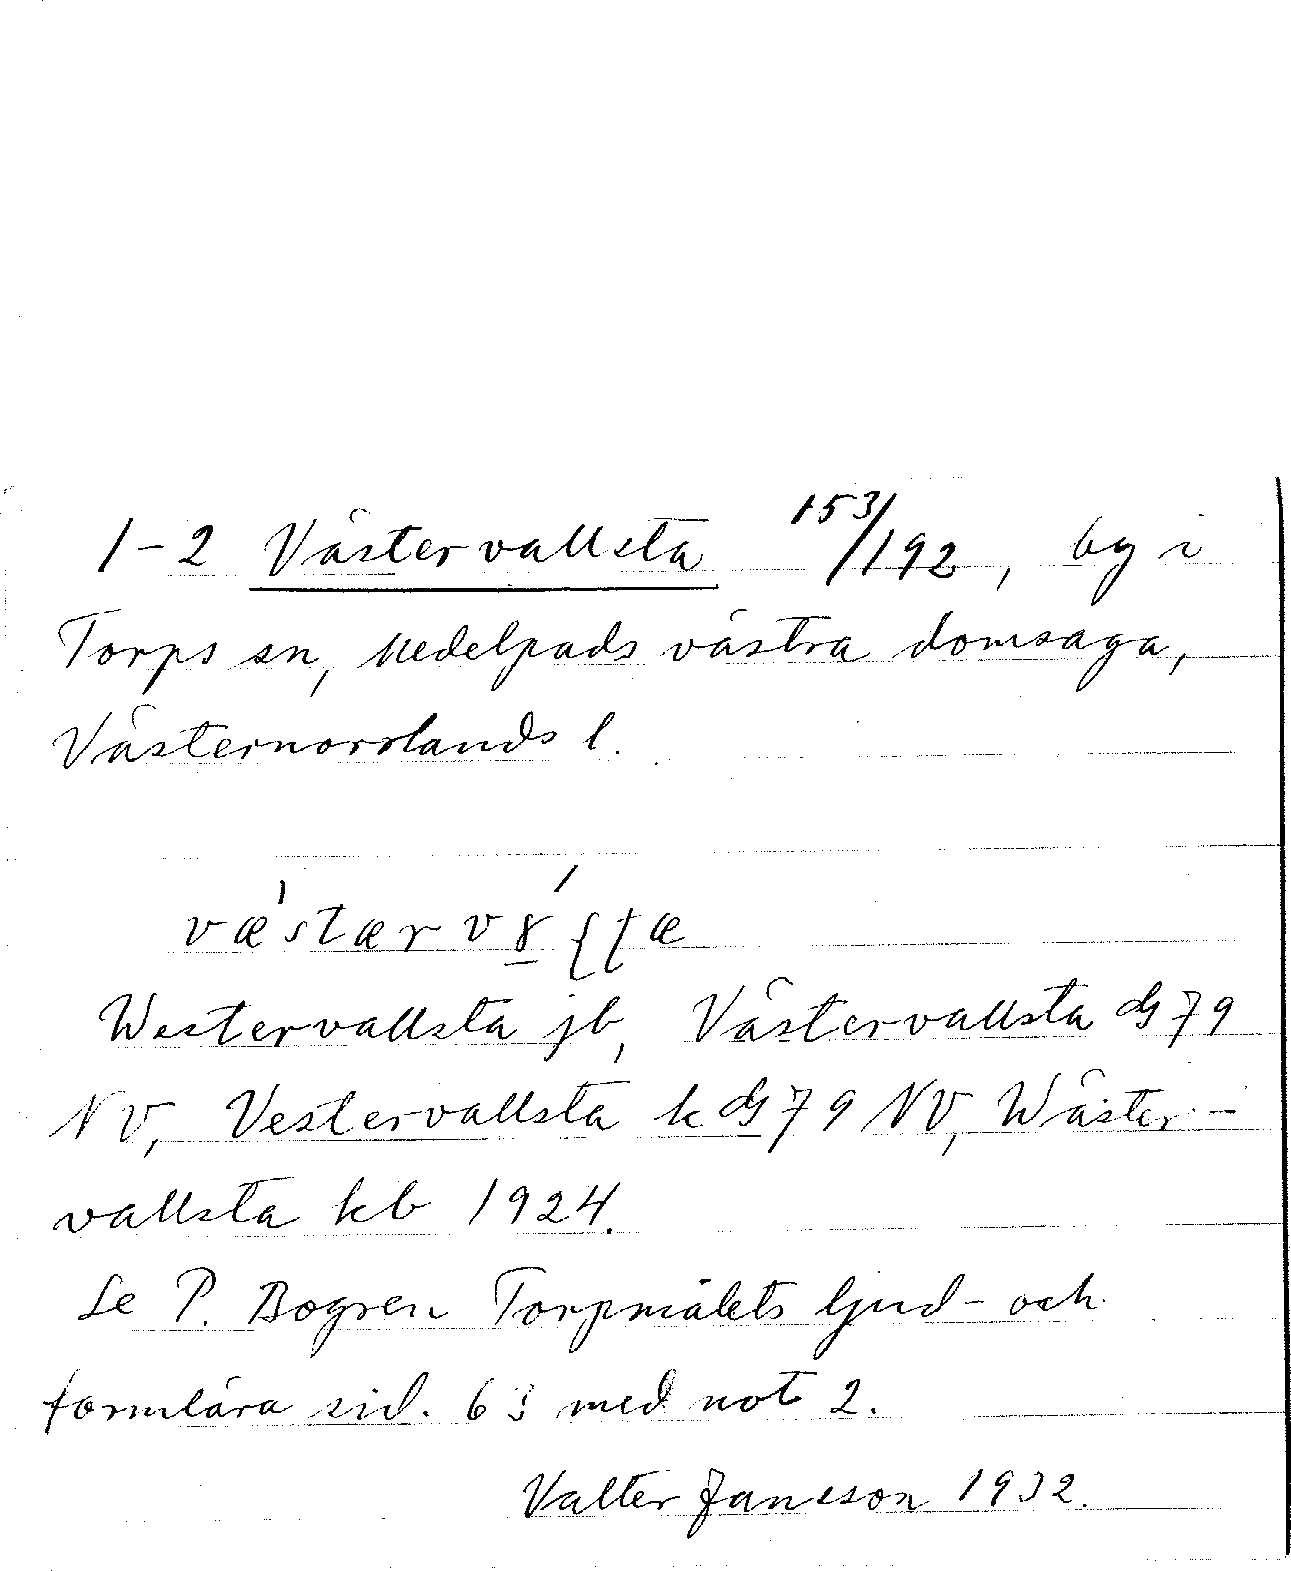 1-2 Västervallsta 153/192, by i
Torps sn, Medelpads västra domsaga,
Västernorrlands l.
Westervallsta jb, Västervallsta GS 79
NV, Vestervallsta k GS 79 NV, Wäster-
vallsta kb 1924.
Se P. Bogren Torpmålets ljud- och
formlära sid. 63 med not 2.
Valter Jansson 1932.